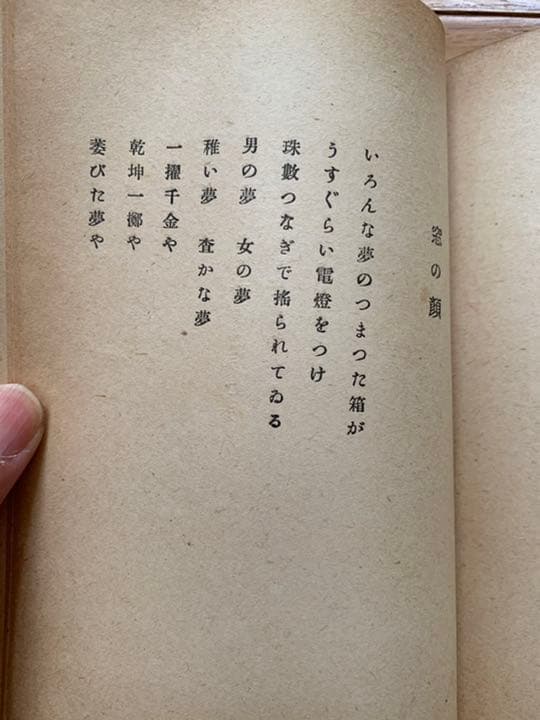 窓の顔
いろんな夢のつまつた箱が
うすぐらい電燈をつけ
珠數つなぎで搖られてゐる
男の夢　女の夢
稚い夢　杳かな夢
一擢千金や
乾坤一擲や
萎びた夢や